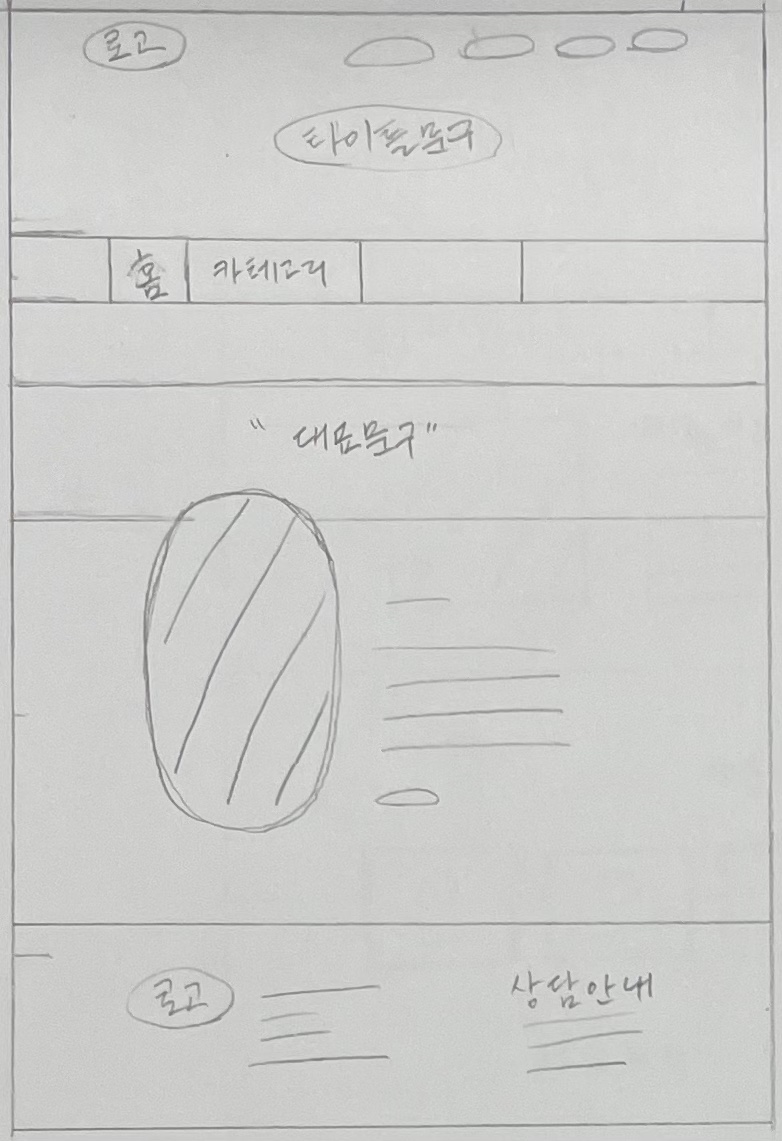 로고
타이틀문구
홈 카테고리
"대표문구"
로고
상담안내